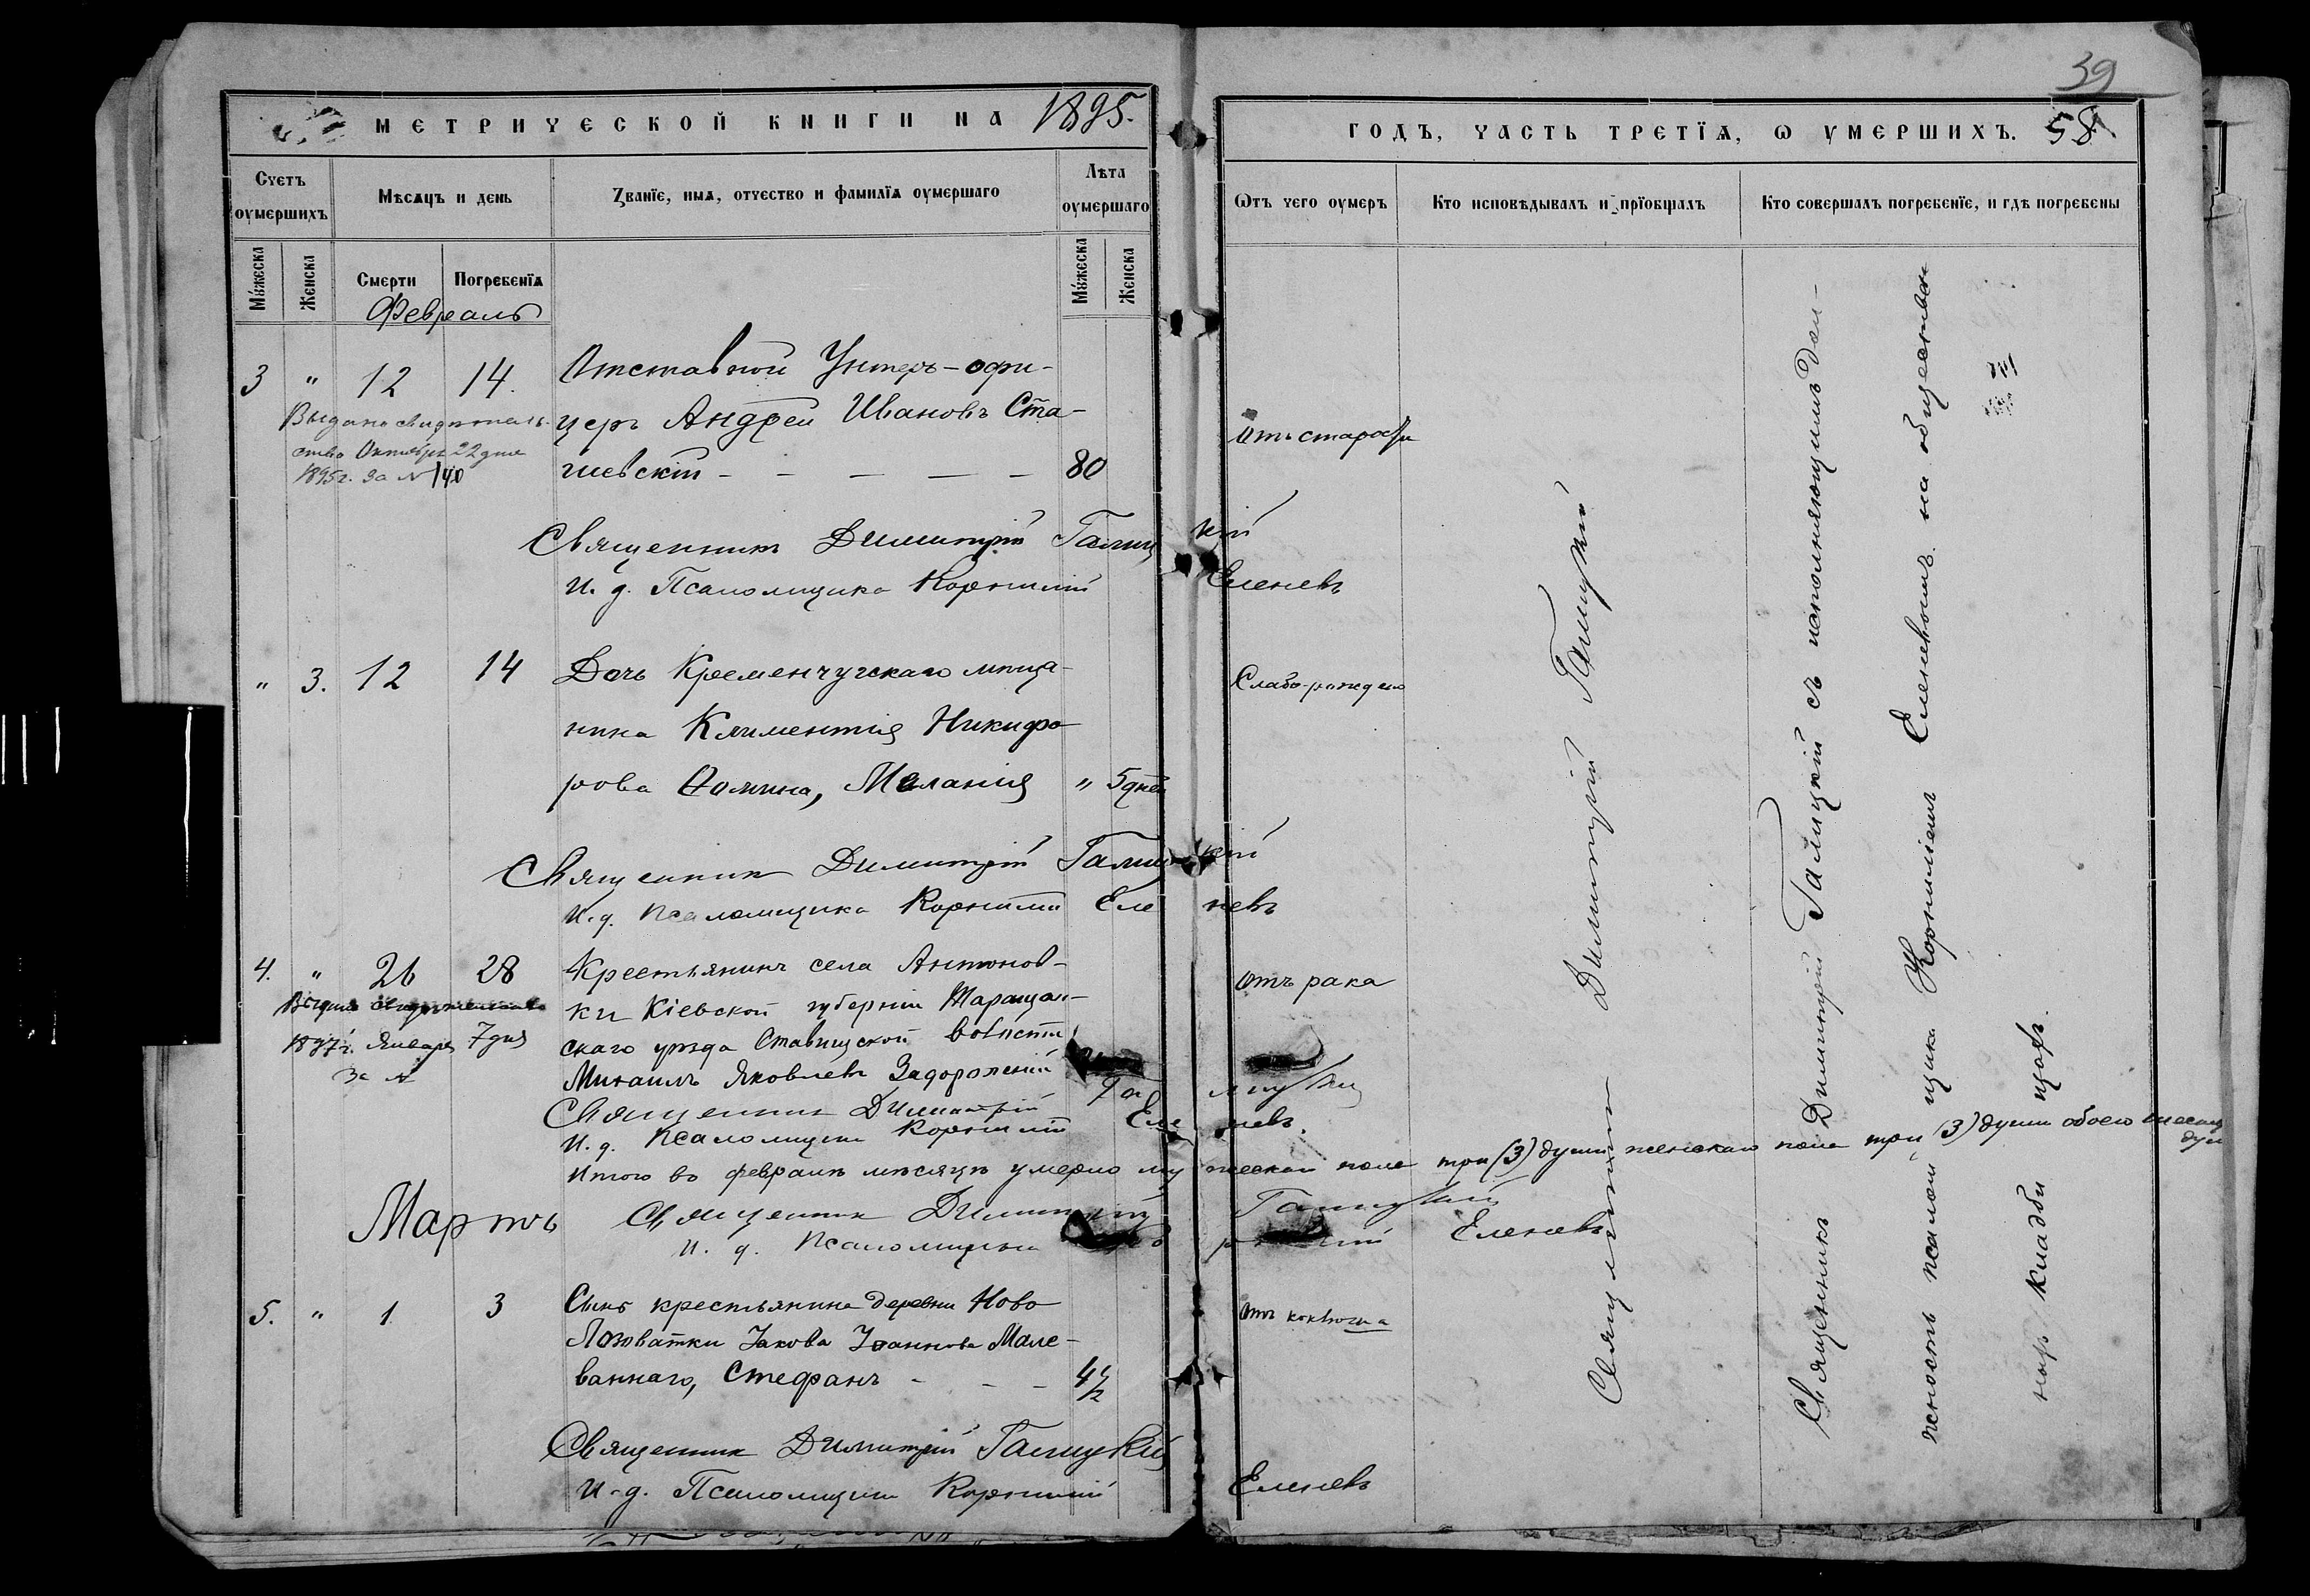 МЕТРИЧЕСКОЙ КНИГИ НА 1895.
Счетъ оумершихъ
Мѣсяцъ и день
Званїе, имя, отчество и фамилїя оумершаго
Лѣта оумершаго
Мꙋжеска
Женска
Смерти
Погребенїя
Мꙋжеска
Женска
Февраль
3 " 12 14. Отставной Унтеръ-офи-
церъ Андрей Ивановъ Ста-
шевскій - - - - - 80
Выдано свидѣтель-
ство Октября 22 дня
1895 г. за № 140
Священникъ Димитрій Галицкій
И. д. Псаломщика Корнилій Еленевъ
" 3. 12 14 Дочь Кременчугскаго мѣща-
нина Климентія Никифо-
рова Фомина, Меланія " 5 дней
Священникъ Димитрій Галицкій
И. д. псаломщика Корнилій Еленевъ
4. " 26 28 Крестьянинъ села Антонов-
ки Кіевской губерніи Таращан-
скаго уѣзда Ставищской волости
Михаилъ Яковлевъ Задорожній
Выдано свидѣтельство
1897 г. Января 7 дня
За №
Священникъ Димитрій Галицкій
И. д. псаломщика Корнилій Еленевъ.
Итого во февралѣ мѣсяцѣ умерло мужескаго пола три (3) души женскаго пола три (3) души обоего шесть
душ
Мартъ
Священникъ Димитрій Галицкій
И. д. псаломщика Корнилій Еленевъ
5. " 1. 3 Сынъ крестьянина деревни Ново
Лозоватки Іакова Іоаннова Мале-
ваннаго, Стефанъ - - - 4 1/2
Священникъ Димитрій Галицкій
И. д. Псаломщика Корнилій Еленевъ
39
ГОДЪ, ЧАСТЬ ТРЕТЇЯ, Ѡ УМЕРШИХЪ. 58.
Ѿтъ чего оумеръ
Кто исповѣдывалъ и прїобщалъ
Кто совершалъ погребенїе, и гдѣ погребены
Отъ старости
Слабо-рожденія
Отъ рака
Отъ коклюша
Священникъ Димитрій Галицкій
Священникъ Димитрій Галицкій съ исполняющимъ дол-
жность псаломщика Корниліемъ Еленевымъ на обществен
номъ кладби щѣ.